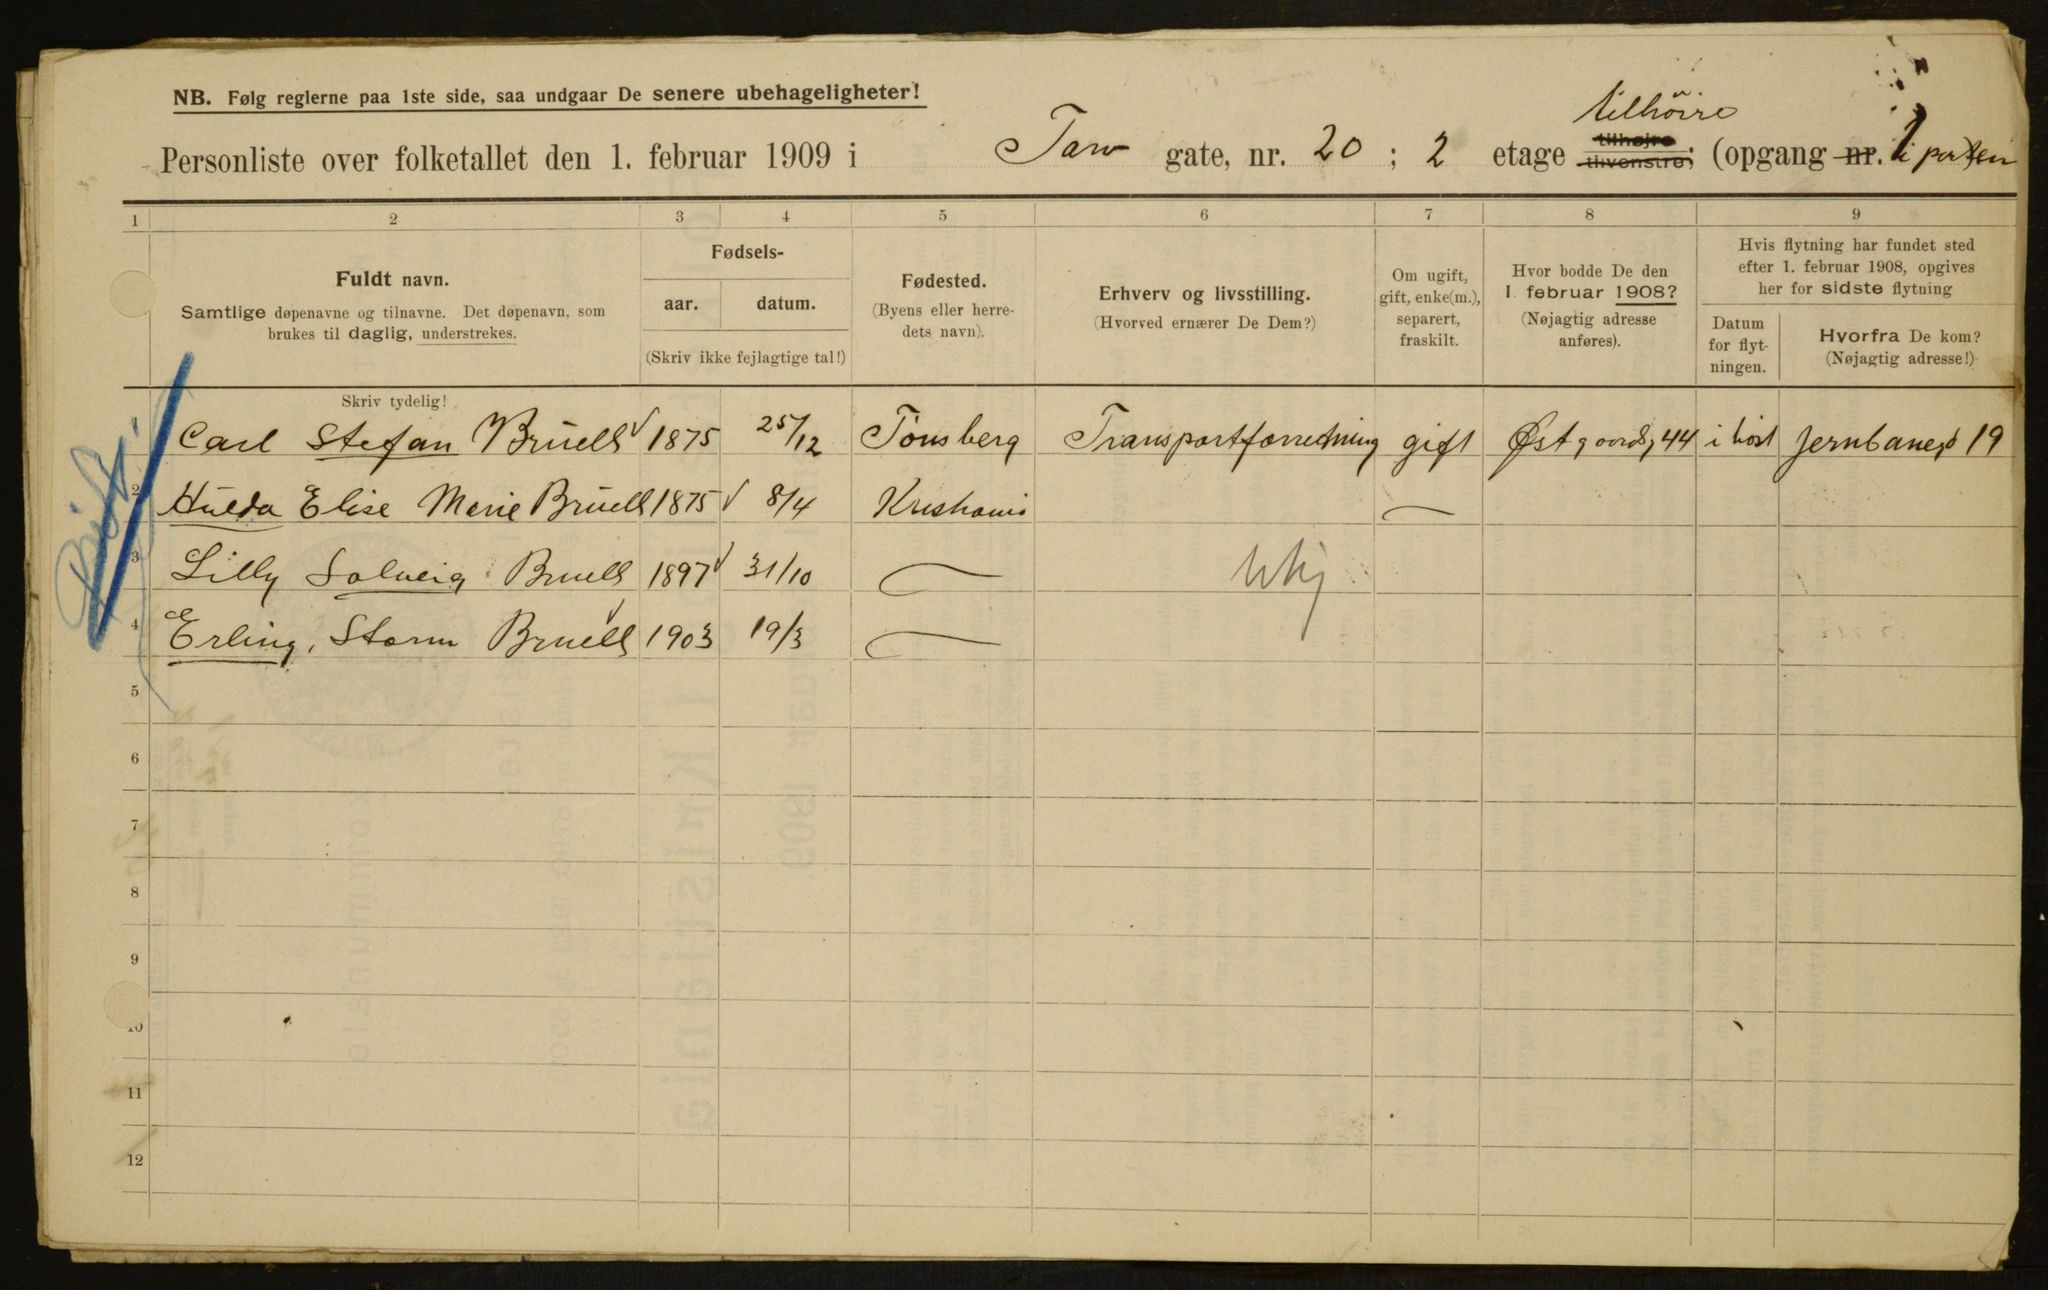 NB. Følg reglerne paa 1ste side, saa undgaar De senere ubehageligheter!
tilhöire
Personliste over folketallet den 1. februar 1909 i Torv gate, nr. 20 ; 2 etage tilhøjre tilvenstre; (opgang nr. i porten
1 2 3 4 5 6 7 8 9
Fuldt navn.
Samtlige døpenavne og tilnavne. Det døpenavn, som
brukes til daglig, understrekes.
Fødsels-
aar. datum.
(Skriv ikke fejlagtige tal!)
Fødested.
(Byens eller herre-
dets navn).
Erhverv og livsstilling.
(Hvorved ernærer De Dem?)
Om ugift,
gift, enke(m.),
separert,
fraskilt.
Hvor bodde De den
1. februar 1908?
(Nøjagtig adresse
anføres).
Hvis flytning har fundet sted
efter 1. februar 1908, opgives
her for sidste flytning
Datum
for flyt-
ningen.
Hvorfra De kom?
(Nøjagtig adresse!)
Skriv tydelig!
1 Carl Stefan Bruell 1875 25/12 Tönsberg Transportforretning gift Østgaardsg 44 i höst Jernbaneg 19
2 Hulda Elise Marie Bruell 1875 8/4 Kristiania —
3 Lilly Solveig Bruell 1897 31/10 —
4 Erling, Storm Bruell 1903 19/3 —
5
6
7
8
9
10
11
12